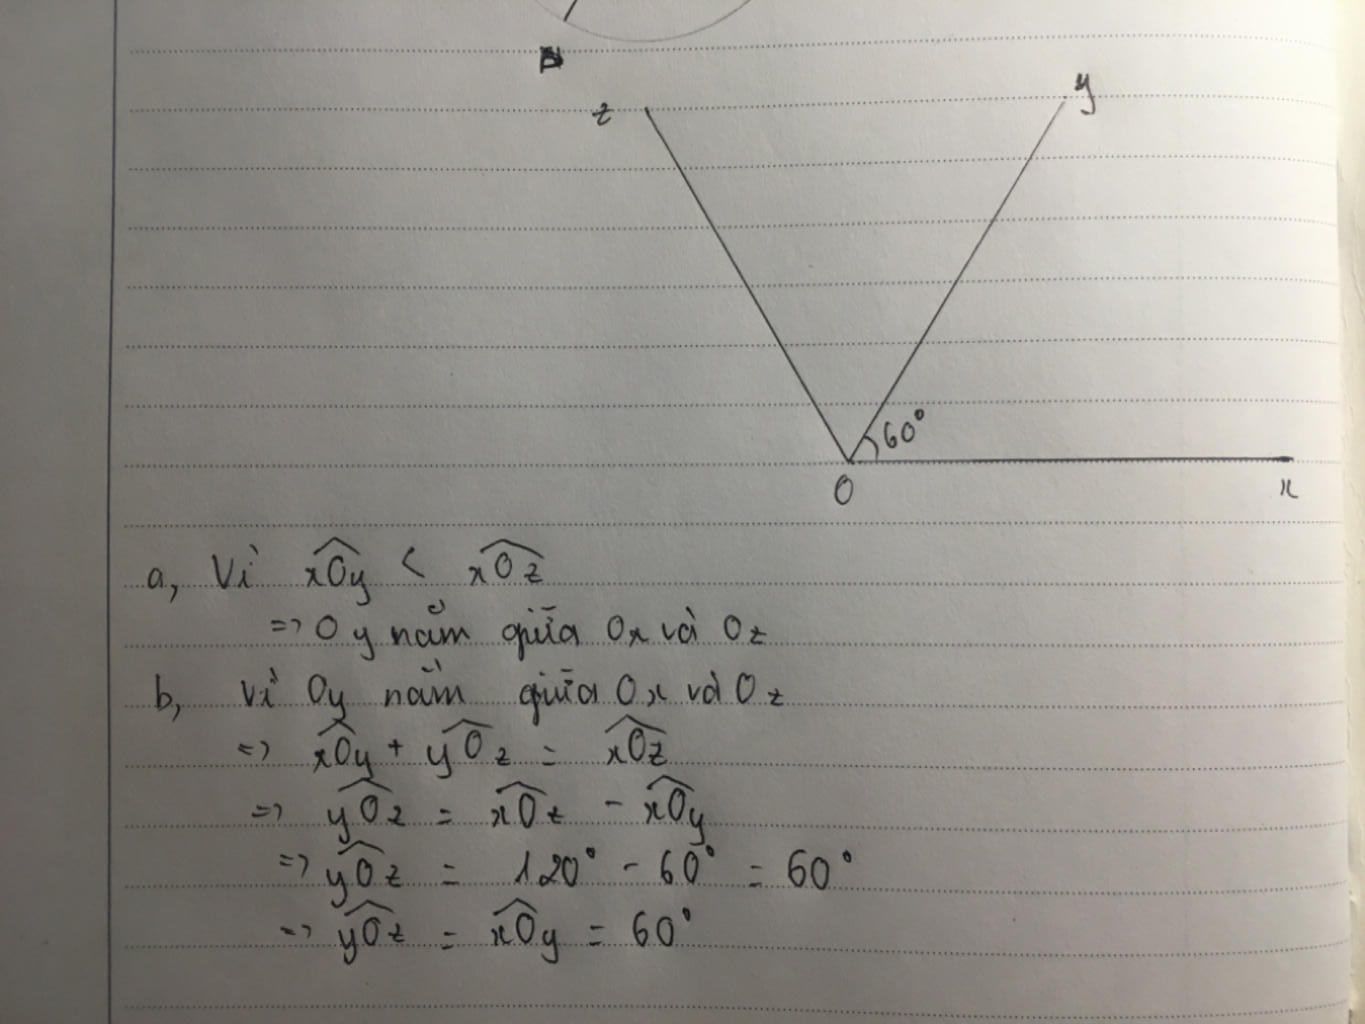 B
z
y
60°
O
x
a, Vì xOy < xOz
=> Oy nằm giữa Ox và Oz
b, Vì Oy nằm giữa Ox và Oz
=> xOy + yOz = xOz
=> yOz = xOz - xOy
=> yOz = 120° - 60° = 60°
=> yOz = xOy = 60°